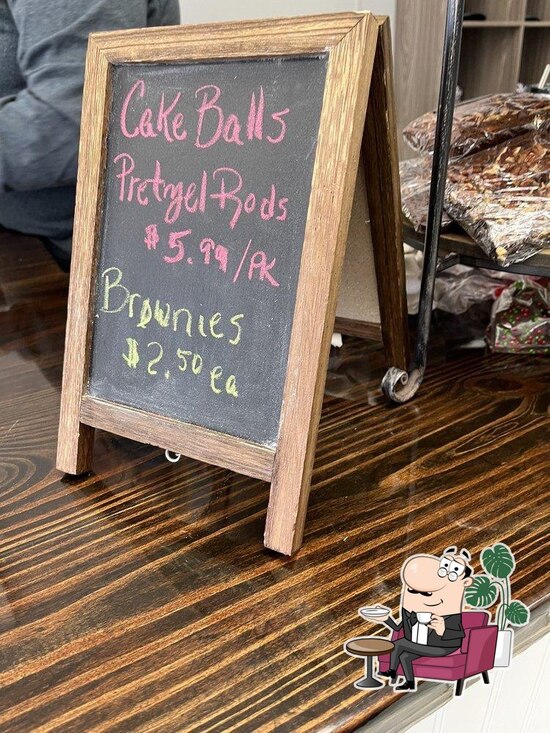 Cake Balls
Pretzel Rods
$5.99/PK
Brownies
$2.50 ea